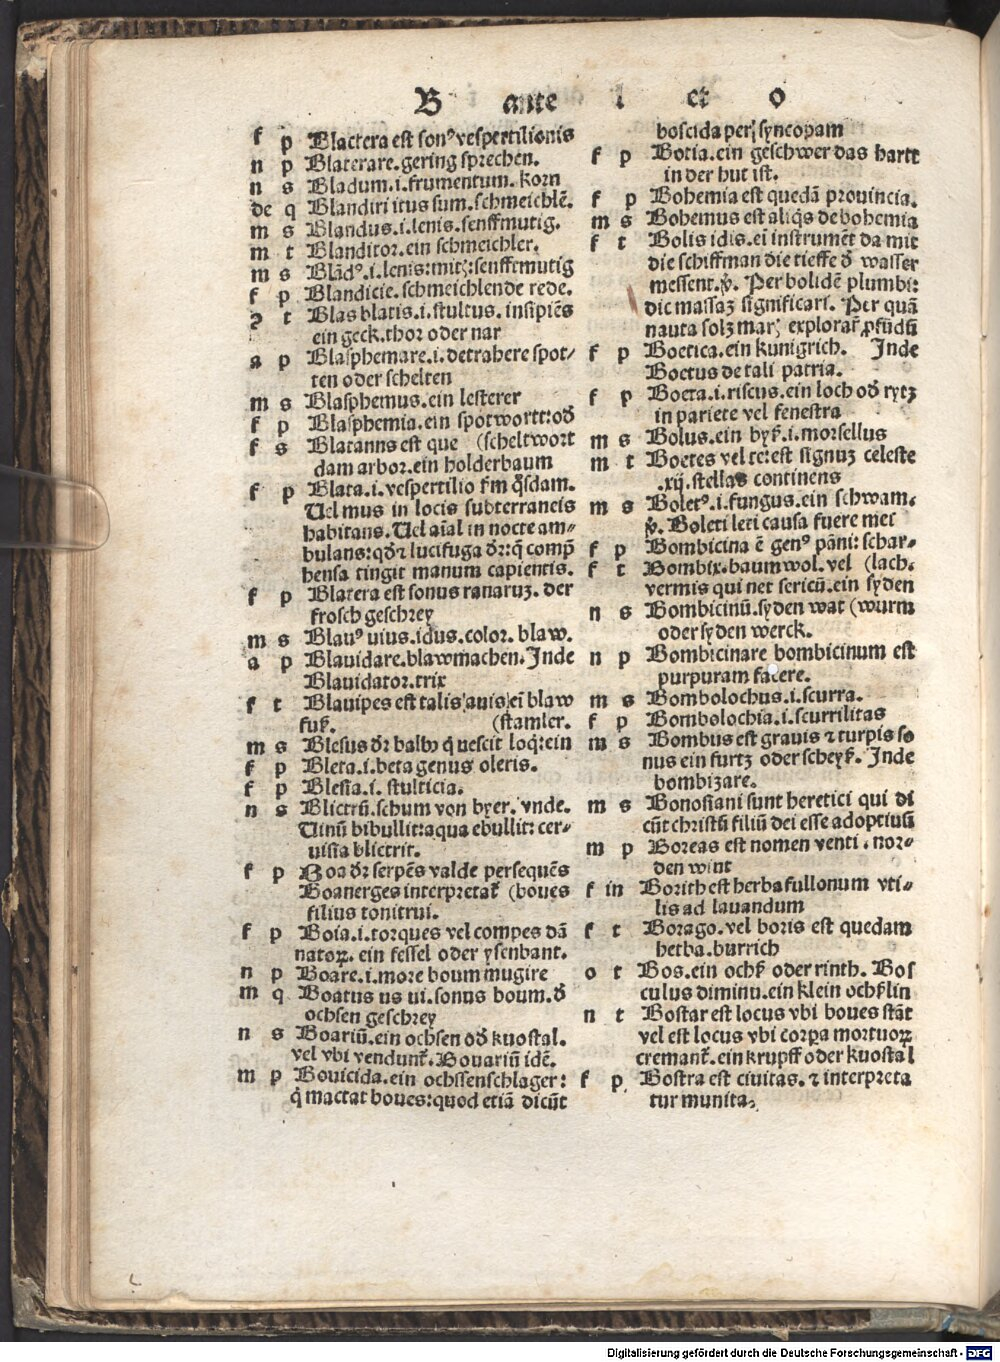 B ante l et o
f p Blactera est sonꝰ vespertilionis
n p Blaterare.gering sprechen.
n s Bladum.i.frumentum. korn
de q Blandiri itus sum.schmeichlē.
m s Blandus.i.lenis.senffmutig.
m t Blanditor.ein schmeichler.
m s Blādꝰ.i.lenis:mitꝫ:senfftmutig
f p Blandicie.schmeichlende rede.
ꝯ t Blas blatis.i.stultus. insipiēs
ein geck.thor oder nar
a p Blasphemare.i.detrahere spot⸗
ten oder schelten
m s Blasphemus.ein lesterer
f p Blasphemia.ein spotwortt:od̄
f s Blatanns est que (scheltwort
dam arbor.ein holderbaum
f p Blata.i.vespertilio f̄m q̄sdam.
Uel mus in locis subterraneis
habitans.Uel aīal in nocte am⸗
bulans:qd̄ꝛ lucifuga dr̄:q̄ comp̄
hensa tingit manum capientis.
f p Blatera est sonus ranaruꝫ. der
frosch geschrey
m s Blauꝰ uius.idus.color. blaw.
a p Blauidare.blawmachen.Inde
Blauidator.trix
f t Blauipes est talis auis:eī blaw
fuſz. (stamler.
m s Blesus dr̄ balbꝰ q̄ nescit loqͥ:ein
f p Bleta.i.beta genus oleris.
f p Blesia.i. stulticia.
n s Blictrū.schum von byer. vnde.
Uinū bibullit:aqua ebullit: cer⸗
uisia blictrit.
f p Boa dr̄ serpēs valde persequēs
Boanerges interpretat̄ (boues
filius tonitrui.
f p Boia.i.torques vel compes dā
natoꝝ. ein fessel oder ysenbant.
n p Boare.i.more boum mugire
m q Boatus us ui.sonus boum.d̄
ochsen geschrey
n s Boariū.ein ochsen od̄ kuostal.
vel vbi vendunt̄.Bouariū idē.
m p Bouicida.ein ochssenschlager:
q̄ mactat boues:quod etiā dicūt
boscida per syncopam
f p Botia.ein geschwer das hartt
in der hut ist.
f p Bohemia est quedā prouincia.
m s Bohemus est aliqͥs de bohemia
f t Bolis idis.eī instrumēt da mit
die schiffman die tieffe d̄ wasser
messent.ꝟ. Per bolidē plumbi:
dic massaꝫ significari. Per quā
nauta solꝫ marꝭ explorar̄ ꝓfūdū
f p Boetica.ein kunigrich. Inde
Boetus de tali patria.
f p Boeta.i.riscus.ein loch od̄ rytz
in pariete vel fenestra
m s Bolus.ein byſz.i.morsellus
m t Boetes vel te:est signuꝫ celeste
.xij.stellas continens
m s Boletꝰ.i.fungus.ein schwam.
ꝟ. Boleti leti causa fuere mei
f p Bombicina ē genꝰ pāni: schar⸗
f t Bombix.baumwol. vel (lach.
vermis qui net sericū.ein syden
n s Bombicinū.syden wat (wurm
oder syden werck.
n p Bombicinare bombicinum est
purpuram facere.
m s Bombolochus.i.scurra.
f p Bombolochia.i.scurrilitas
m s Bombus est grauis ꝛ turpis so
nus ein furtz oder scheyſz. Inde
bombizare.
m s Bonosiani sunt heretici qui di
cūt christū filiū dei esse adoptiuū
m p Boreas est nomen venti . nor⸗
den wint
f in Borith est herba fullonum vti⸗
lis ad lauandum
f t Borago.vel boris est quedam
herba.burrich
o t Bos.ein ochſz oder rinth. Bos
culus diminu.ein klein ochſzlin
n t Bostar est locus vbi boues stāt
vel est locus vbi corpa mortuoꝝ
cremant̄.ein krupff oder kuostal
f p Bostra est ciuitas. ꝛ interpreta
tur munita.
Digitalisierung gefördert durch die Deutsche Forschungsgemeinschaft - DFG